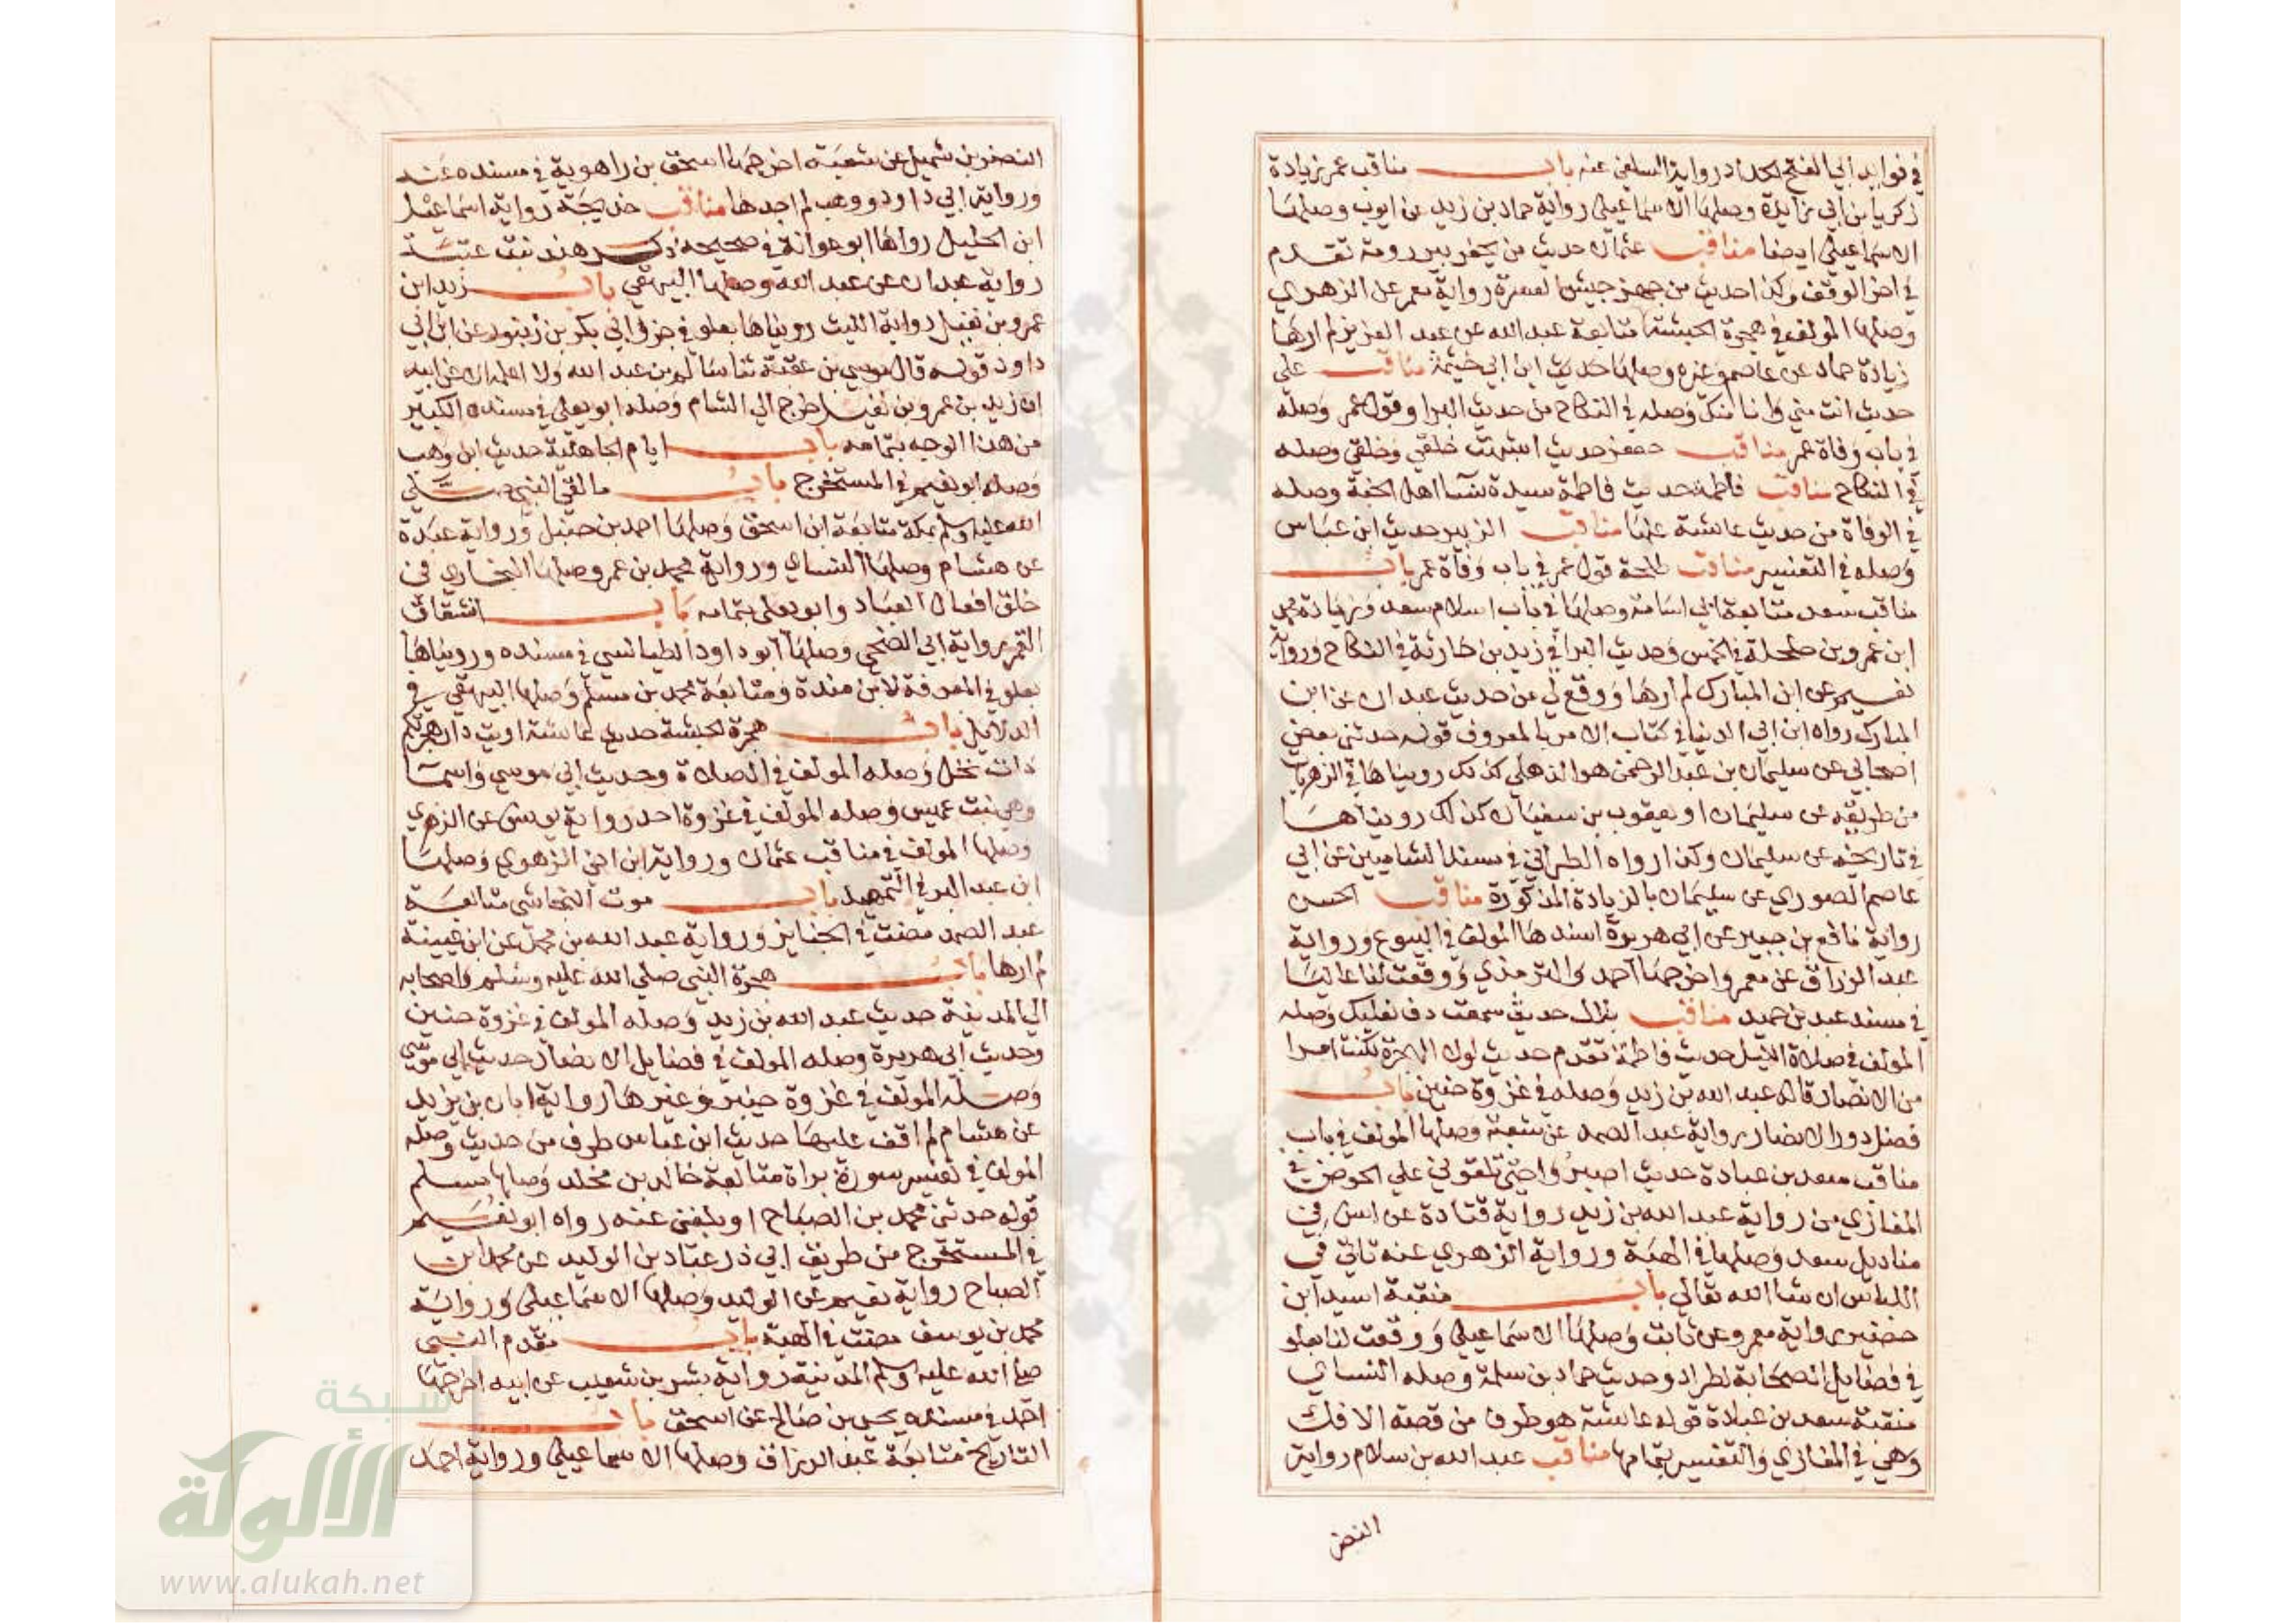 في فوايد أبي الفتح الحداد رواية السلفي عنه باب مناقب عمر زيادة
زكريا بن ابي زايدة وصلها الاسماعيلي رواية حماد بن زيد عن ايوب وصلها
الاسماعيلي ايضا مناقب عثمان حديث من يحفر بير رومة تقدم
في اخر الوقف وكذا حديث من جهز جيش العسرة رواية معمر عن الزهري
وصلها المولف في هجرة الحبشة متابعة عبد الله عن عبد العزيز لم ارها
زيادة حماد عن عاصم وغيره وصلها حديث ابن ابي خيثمة مناقب علي
حديث انت مني وانا منك وصله في النكاح من حديث البرا وقول عمر وصله
في باب وفاة عمر مناقب جعفر حديث اشبهت خلقي وخلقي وصله
في النكاح مناقب فاطمة حديث فاطمة سيدة نسا اهل الجنة وصله
في الوفاة من حديث عائشة عنها مناقب الزبير حديث ابن عباس
وصله في التفسير مناقب طلحة قول عمر في باب وفاة عمر باب
مناقب سعد متابعة ابي اسامة وصلها في باب اسلام سعد وزيادة محمد
ابن عمرو بن حلحلة في الخمس وحديث البرا في زيد بن حارثة في النكاح ورواية
نعيم عن ابن المبارك لم ارها ووقع لي من حديث عبدان عن ابن
المبارك رواه ابن ابي الدنيا في كتاب الامر بالمعروف قوله حدثني بعض
اصحابي عن سليمان بن عبد الرحمن هو الذهلي كذلك رويناها في الزهريات
من طريقه عن سليمان او يعقوب بن سفيان كذلك رويناها
في تاريخه عن سليمان وكذا رواه الطبراني في مسند الشاميين عن ابي
عاصم الصوري عن سليمان بالزيادة المذكورة مناقب الحسن
رواية نافع بن جبير عن ابي هريرة اسندها المولف في البيوع ورواية
عبد الرزاق عن معمر واخرجها احمد والترمذي ووقعت لنا عاليا
في مسند عبد بن حميد مناقب بلال حديث سمعت دف نعليك وصله
المولف في صلاة الليل حديث فاطمة تقدم حديث لولا الهجرة لكنت امرا
من الانصار قاله عبد الله بن زيد وصله في غزوة حنين باب
فضل دور الانصار رواية عبد الصمد عن شعبة وصلها المولف في باب
مناقب سعد بن عبادة حديث اصبروا حتى تلقوني علي الحوض في
المغازي من رواية عبد الله بن زيد رواية قتادة عن انس في
مناديل سعد وصلها في الهبة ورواية الزهري عنه تاتي في
اللباس ان شا الله تعالي باب منقبة اسيد ابن
حضير رواية معمر عن ثابت وصلها الاسماعيلي ووقعت لنا بعلو
في فضايل الصحابة لطراد وحديث حماد بن سلمة وصله النساي
منقبة سعد بن عبادة قول عائشة هو طرف من قصة الافك
وهي في المغازي والتفسير بتمامها مناقب عبد الله بن سلام رواية
النضر
النضر بن شميل عن شعبة اخرجها اسحق بن راهوية في مسنده عنه
ورواية ابي داود ووهب لم اجدها مناقب خديجة رواية اسماعيل
ابن الخليل رواها ابو عوانة في صحيحه ذكر هند بنت عتبة
رواية عبدان عن عبد الله وصلها البيهقي باب زيد ابن
عمرو بن نفيل رواية الليث رويناها بعلو في جزو ابي بكر بن زنبور عن ابن ابي
داود قوله قال موسي بن عقبة ثنا سالم بن عبد الله ولا اعلمه الا عن ابيه
ان زيد بن عمرو بن نفيل خرج الي الشام وصله ابو يعلي في مسنده الكبير
من هذا الوجه بتمامه باب ايام الجاهلية حديث ابن وهب
وصله ابو نعيم في المستخرج باب ما لقي النبي صلي
الله عليه وسلم بمكة متابعة ابن اسحق وصلها احمد بن حنبل ورواية عبدة
عن هشام وصلها النساي ورواية محمد بن عمرو وصلها البخاري في
خلق افعال العباد وابو يعلي بتمامه باب انشقاق
القمر رواية ابي الضحي وصلها ابو داود الطيالسي في مسنده ورويناها
بعلو في المعرفة لابن مندة ومتابعة محمد بن مسلم وصلها البيهقي في
الدلايل باب هجرة الحبشة حديث عائشة اريت دار هجرتكم
ذات نخل وصله المولف في الصلاة وحديث ابي موسي واسما
وهي بنت عميس وصله المولف في غزوة احد رواية يونس عن الزهري
وصلها المولف في مناقب عثمان ورواية ابن اخي الزهري وصلها
ابن عبد البر في التمهيد باب موت النجاشي متابعة
عبد الصمد مضت في الجنايز ورواية عبد الله بن محمد عن ابن عيينة
لم ارها باب هجرة النبي صلي الله عليه وسلم واصحابه
الي المدينة حديث عبد الله بن زيد وصله المولف في غزوة حنين
وحديث ابي هريرة وصله المولف في فضايل الانصار حديث ابي موسي
وصله المولف في غزوة خيبر وغيرها رواية ابان بن يزيد
عن هشام لم اقف عليها حديث ابن عباس طرف من حديث وصله
المولف في تفسير سورة براة متابعة خالد بن مخلد وصلها مسلم
قوله حدثني محمد بن الصباح او بلغني عنه رواه ابو نعيم
في المستخرج من طريق ابي ذر عباد بن الوليد عن محمد ابن
الصباح رواية نعيم عن الوليد وصلها الاسماعيلي ورواية
محمد بن يوسف مضت في الهبة باب مقدم النبي
صلي الله عليه وسلم المدينة رواية بشر بن شعيب عن ابيه اخرجها
احمد في مسنده يحيى بن صالح عن اسحق باب
التاريخ متابعة عبد الرزاق وصلها الاسماعيلي ورواية احمد
شبكة
الألوكة
www.alukah.net